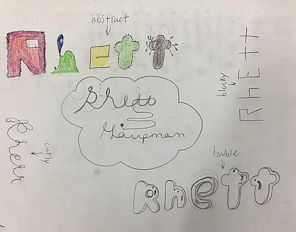 abstract
Rhett
blocky
RhEtt
Rhett
curly
Rhett
bubble
Rhett